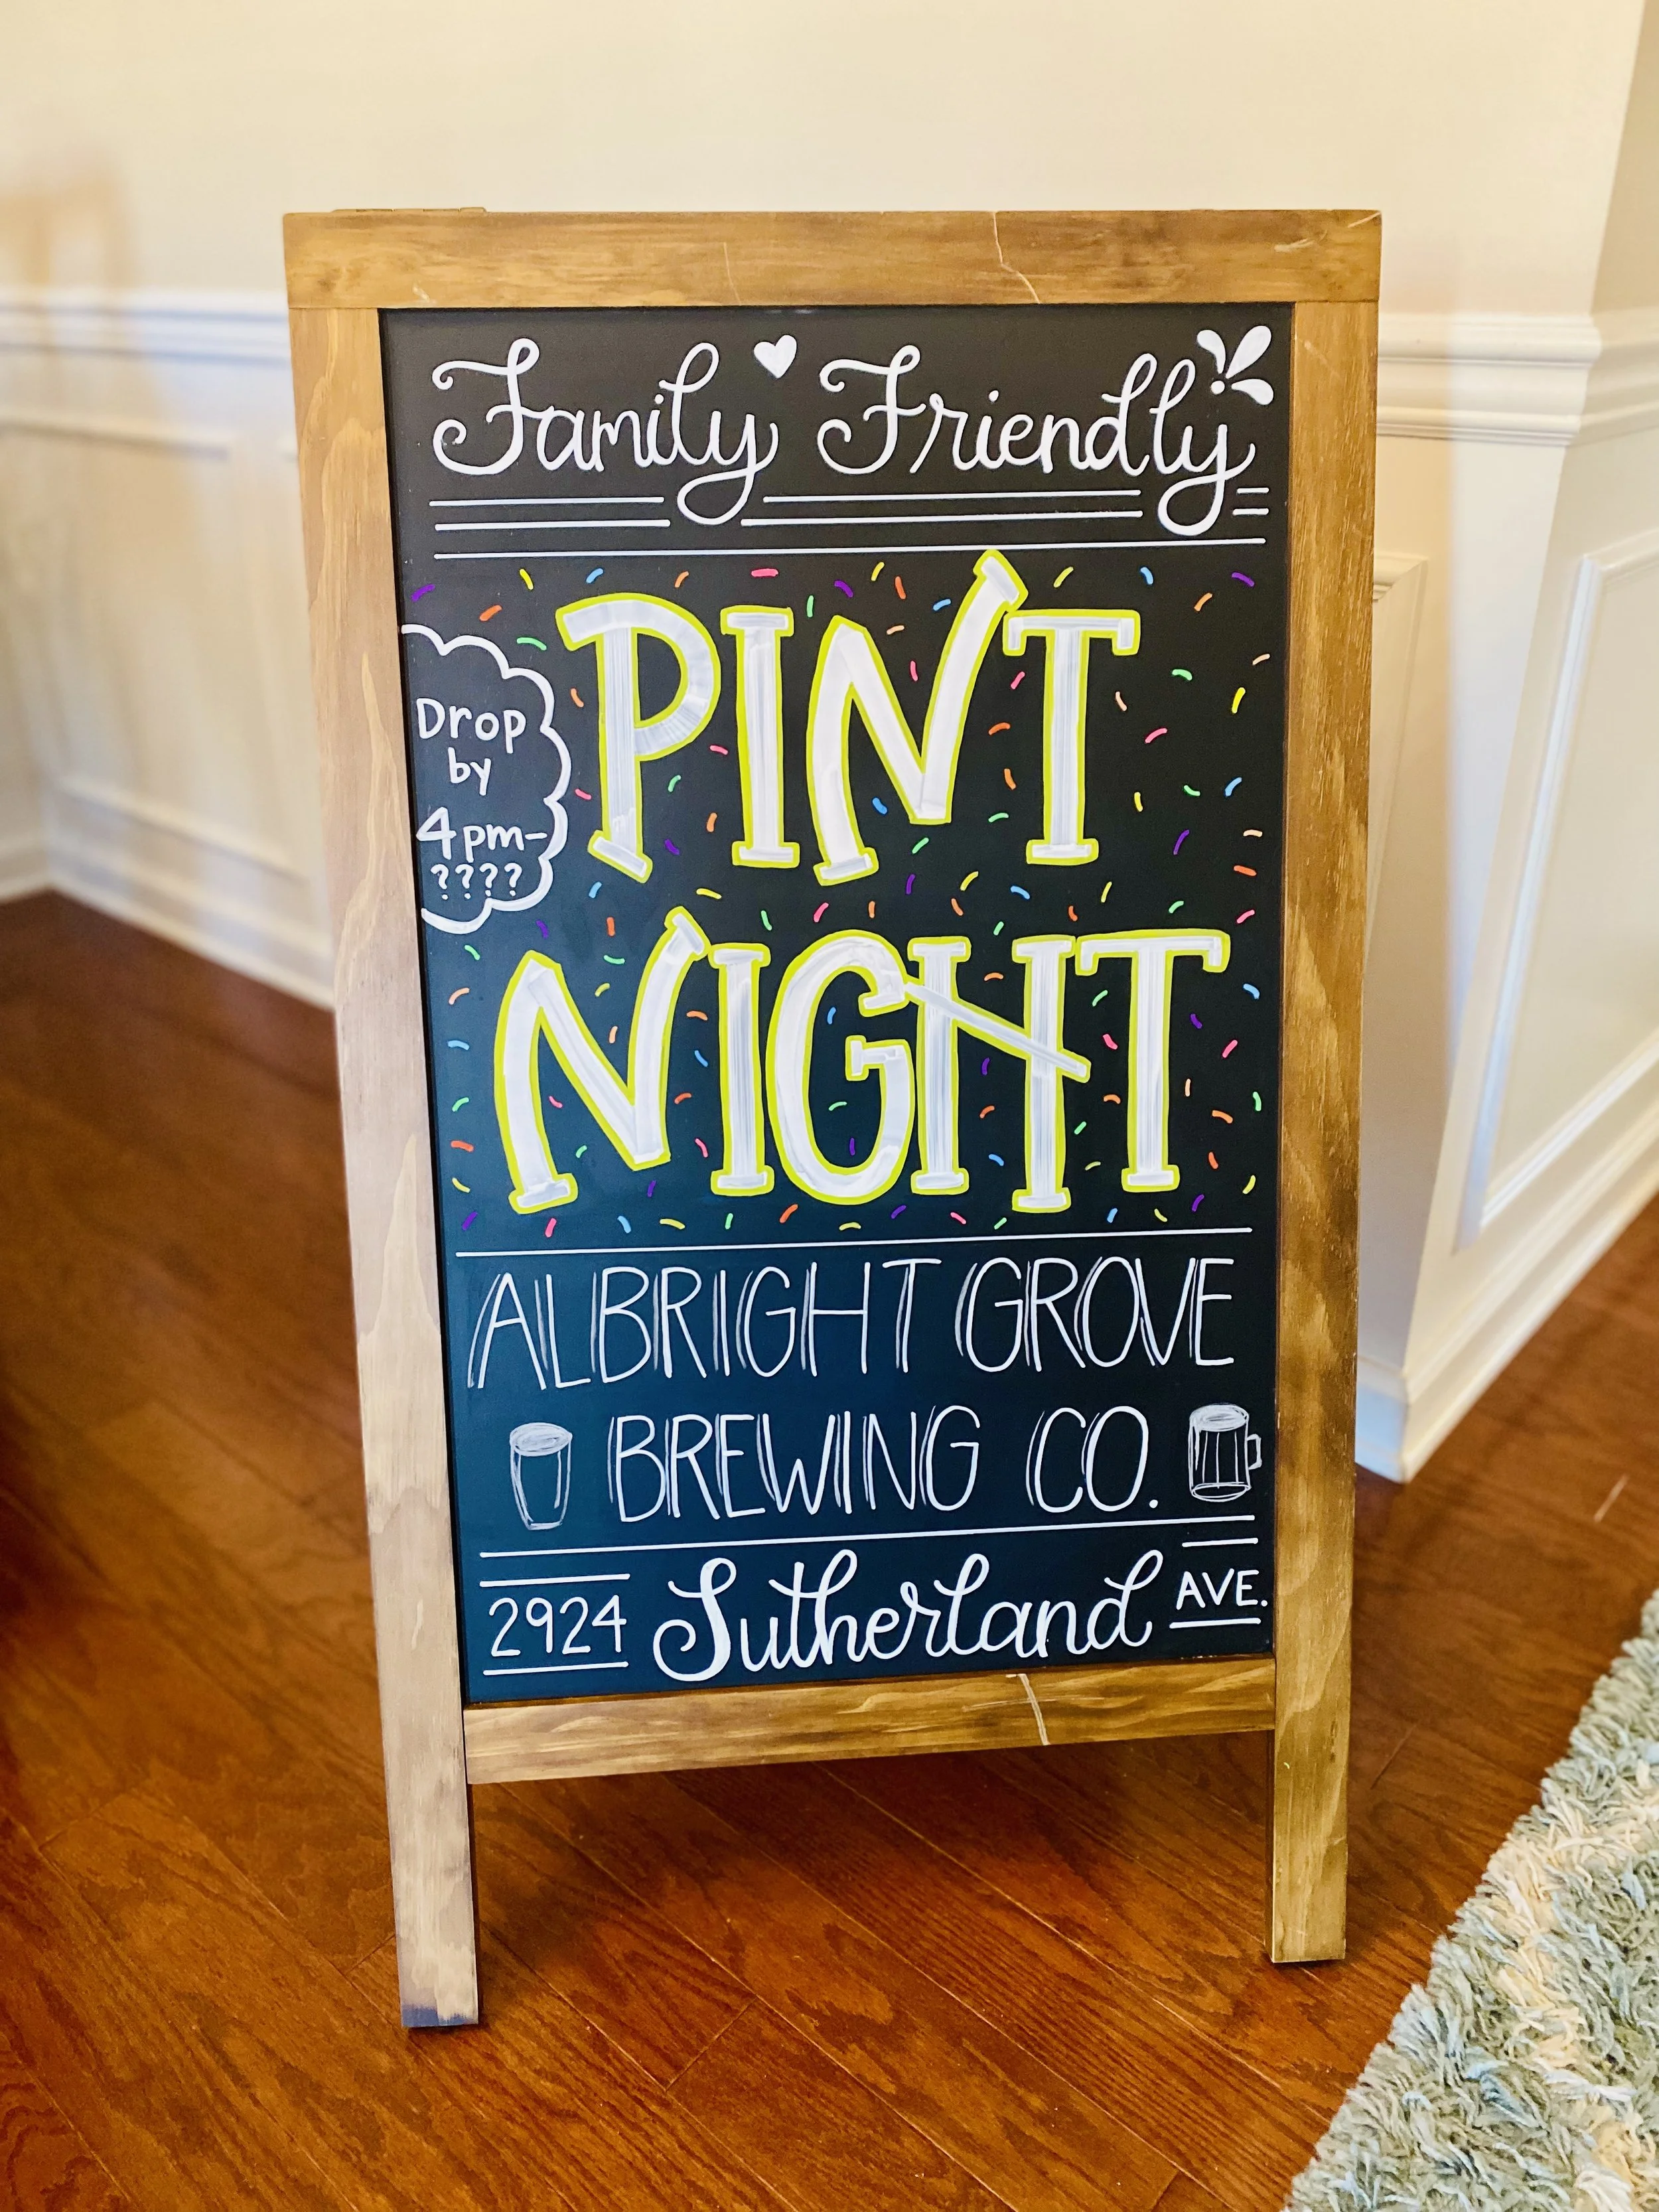 Family Friendly
PINT
Drop
by
4pm-
????
NIGHT
ALBRIGHT GROVE
BREWING CO.
2924 Sutherland AVE.